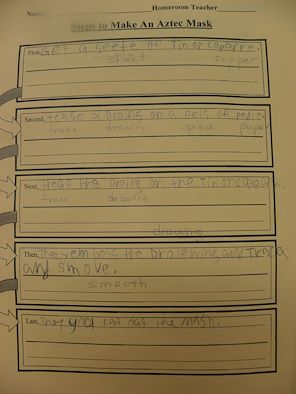 Name Homeroom Teacher
Steps to Make An Aztec Mask
First, Get a seete of Tin or coparre.
sheet copper
Second, trase a droing on a peis of
trace drawing piece paper
Next, the droing on the Tin or
trace drawing
drawing
Then, They emboss the and
and smove.
smooth
Last, They you cat out the mask.